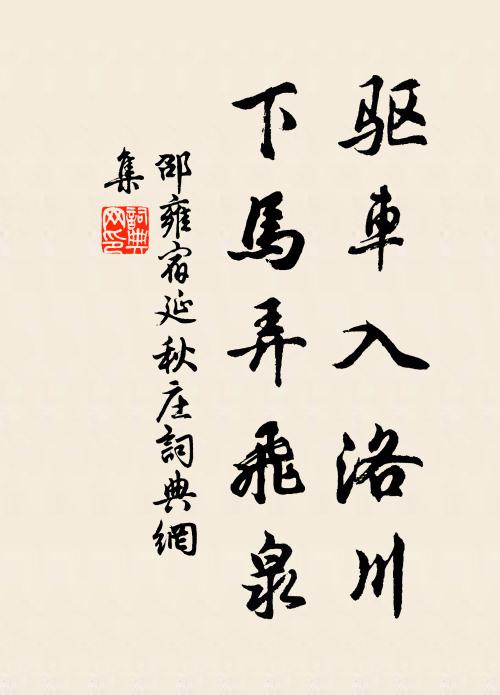 驱車入洛川
下馬弄飛泉
邵雍宿延秋庄詞典網
集
詞典网印